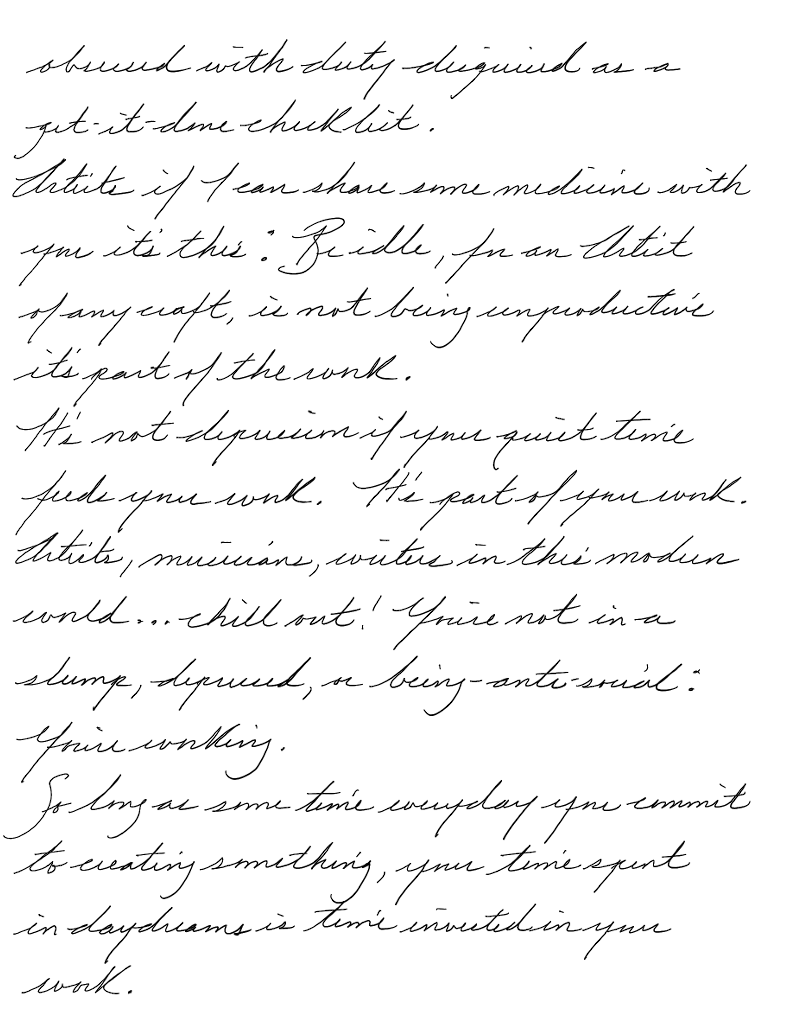 obsessed with duty disguised as a
get-it-done checklist.
Artists if I can share some medicine with
you it's this: Be idle, for an Artist
of any craft, is not being unproductive
it's part of the work.
It's not depression if your quiet time
feeds your work. It's part of your work.
Artists, musicians, writers in this modern
world... chill out! You're not in a
slump, depressed, or being-anti-social:
You're working.
So long as some time everyday you commit
to creating something, your time spent
in daydreams is time invested in your
work.